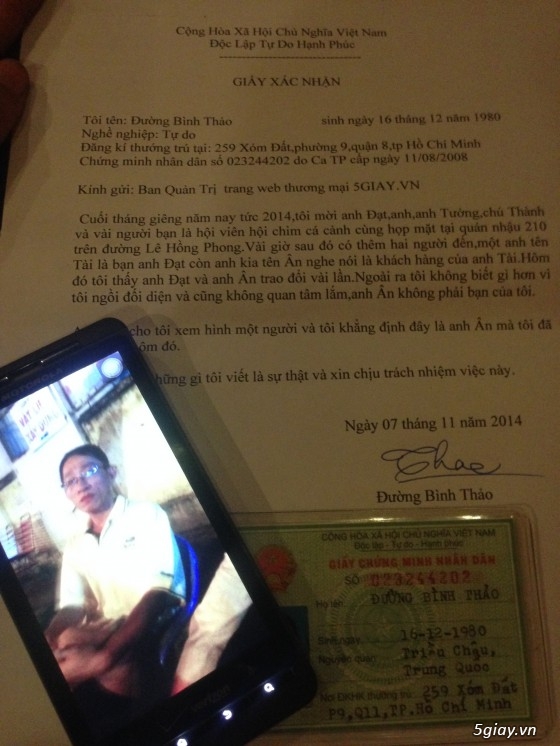 Cộng Hòa Xã Hội Chủ Nghĩa Việt Nam
Độc Lập Tự Do Hạnh Phúc
GIẤY XÁC NHẬN
Tôi tên: Đường Bình Thảo sinh ngày 16 tháng 12 năm 1980
Nghề nghiệp: Tự do
Đăng kí thường trú tại: 259 Xóm Đất,phường 9,quận 8,tp Hồ Chí Minh
Chứng minh nhân dân số 023244202 do Ca TP cấp ngày 11/08/2008
Kính gửi: Ban Quản Trị trang web thương mại 5GIAY.VN
Cuối tháng giêng năm nay tức 2014,tôi mời anh Đạt,anh,anh Tường,chú Thành
và vài người bạn là hội viên hội chim cá cảnh cùng họp mặt tại quán nhậu 210
trên đường Lê Hồng Phong.Vài giờ sau đó có thêm hai người đến,một anh tên
Tài là bạn anh Đạt còn anh kia tên Ân nghe nói là khách hàng của anh Tài.Hôm
đó tôi thấy anh Đạt và anh Ân trao đổi vài lần.Ngoài ra tôi không biết gì hơn vì
tôi ngồi đối diện và cũng không quan tâm lắm,anh Ân không phải bạn của tôi.
cho tôi xem hình một người và tôi khẳng định đây là anh Ân mà tôi đã
hôm đó.
những gì tôi viết là sự thật và xin chịu trách nhiệm việc này.
Ngày 07 tháng 11 năm 2014
Thao
Đường Bình Thảo
CỘNG HÒA XÃ HỘI CHỦ NGHĨA VIỆT NAM
Độc lập - Tự do - Hạnh phúc
GIẤY CHỨNG MINH NHÂN DÂN
SỐ 023244202
Họ tên: ĐƯỜNG BÌNH THẢO
Sinh ngày: 16-12-1980
Nguyên quán: Triều Châu,
Trung Quốc
Nơi ĐKHK thường trú: 259 Xóm Đất
P9,Q11,TP.Hồ Chí Minh
5giay.vn